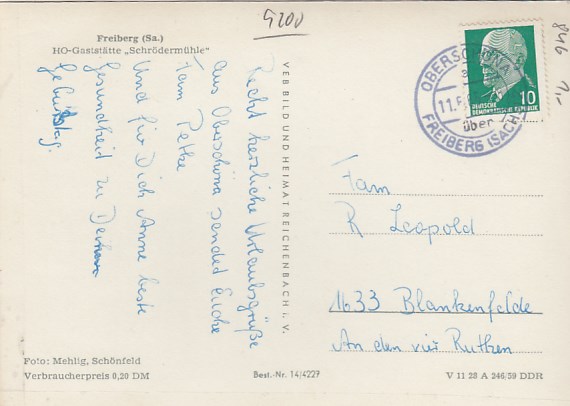 4200
846 1,-
Freiberg (Sa.)
HO-Gaststätte „Schrödermühle"
Recht herzliche Urlaubsgrüße
aus Oberschöna sendet Euch
Fam Petke
und für Dich Anne beste
Gesundheit zu Deinem
Gebutstag.
VEB BILD UND HEIMAT REICHENBACH i. V.
OBERSCHÖNA
11.
über
FREIBERG (SACHS
10
DEUTSCHE
DEMOKRATISCHE REPUBLIK
Fam
R Leopold
1633 Blankenfelde
An den vier Rutken
Foto: Mehlig, Schönfeld
Verbraucherpreis 0,20 DM
Best.-Nr. 14/4227
V 11 28 A 246/59 DDR